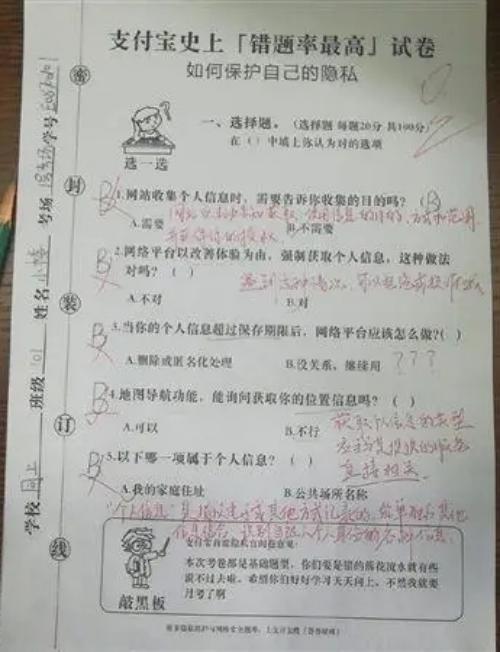 支付宝史上「错题率最高」试卷
如何保护自己的隐私
选一选
一、选择题。（选择题 每题20分 共100分）
在（ ）中填上你认为对的选项
密
封
装
订
线
学校 网上 班级 101 姓名 小陆 考场 考场学号
1.网站收集个人信息时，需要告诉你收集的目的吗？（B
A.需要 B.不需要
并征得你的授权
B 2.网络平台以改善体验为由，强制获取个人信息，这种做法
对吗？（ ）
遇到这种情况，可以拒绝或投诉
A.不对 B.对
B 3.当你的个人信息超过保存期限后，网络平台应该怎么做?( )
A.删除或匿名化处理 B.没关系，继续用 ？？？
B 4.地图导航功能，能询问获取你的位置信息吗？（ ）
A.可以 B.不行
获取个人信息的类型
应当与其提供的服务
直接相关
B 5.以下哪一项属于个人信息？（ ）
A.我的家庭住址 B.公共场所名称
"个人信息"是指以电子或其他方式记录的，能单独或与其他
信息结合，识别自然人个人身份的各种信息。
敲黑板
本次考卷都是基础题型，你们要是错的落花流水就有些
说不过去啦。希望你们好好学习天天向上，不然我就要
月考了啊